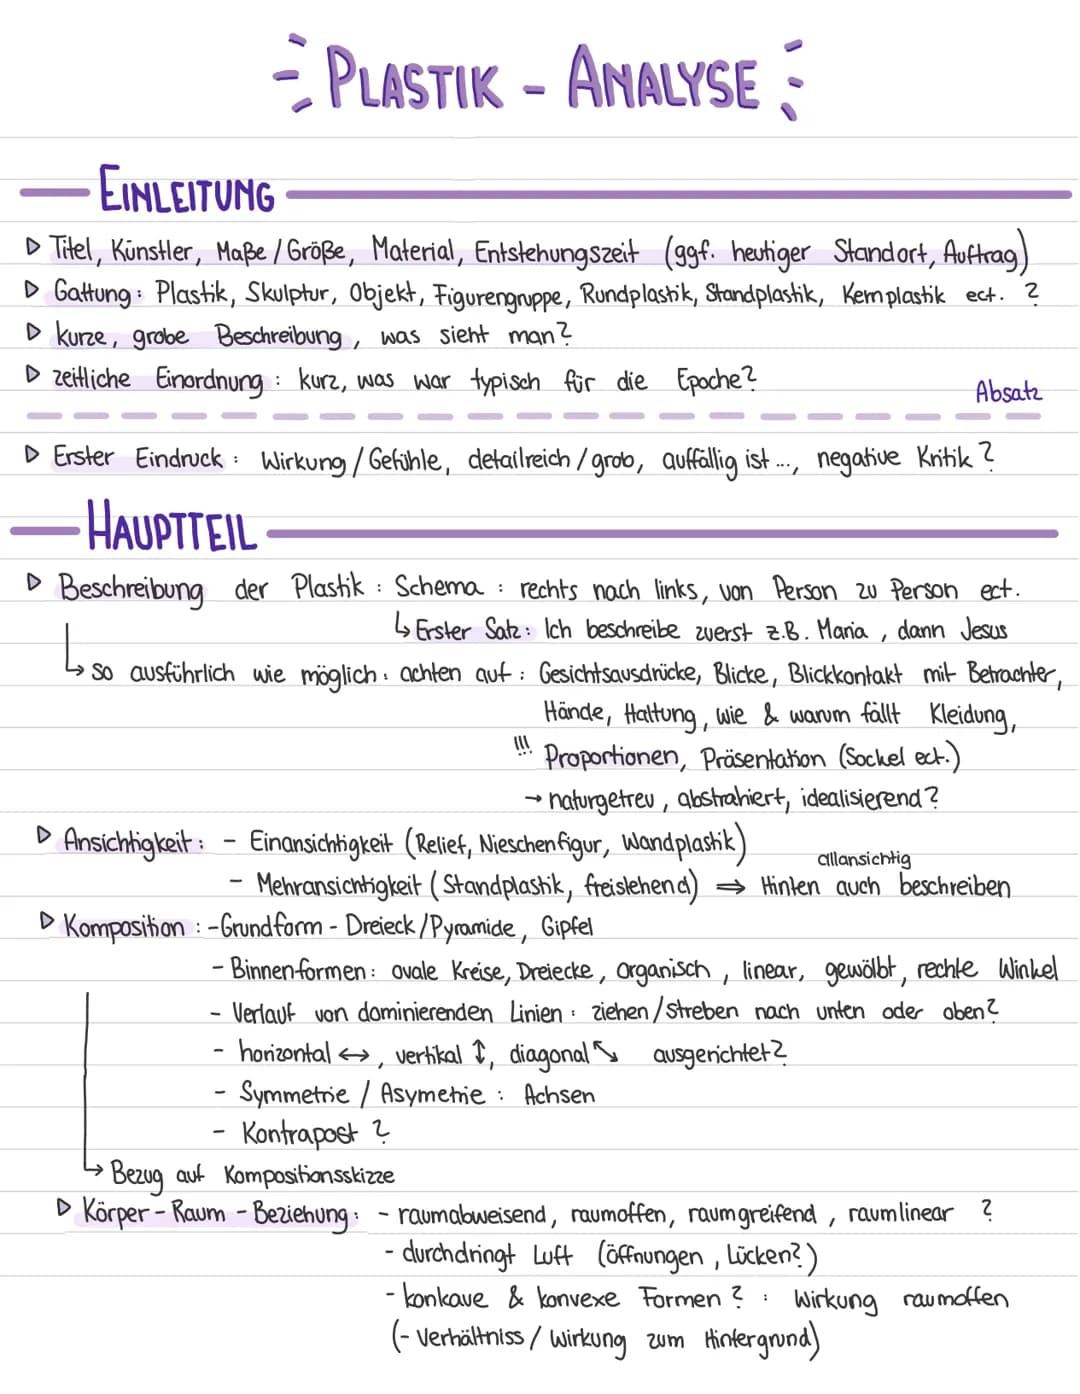 PLASTIK - ANALYSE
EINLEITUNG
▷ Titel, Künstler, Maße / Größe, Material, Entstehungszeit (ggf. heutiger Standort, Auftrag)
▷ Gattung: Plastik, Skulptur, Objekt, Figurengruppe, Rundplastik, Standplastik, Kernplastik ect. ?
▷ kurze, grobe Beschreibung, was sieht man?
▷ zeitliche Einordnung: kurz, was war typisch für die Epoche?
Absatz
▷ Erster Eindruck: Wirkung / Gefühle, detailreich / grob, auffällig ist ..., negative Kritik?
HAUPTTEIL
▷ Beschreibung der Plastik: Schema: rechts nach links, von Person zu Person ect.
↳ Erster Satz: Ich beschreibe zuerst z.B. Maria, dann Jesus
↳ so ausführlich wie möglich: achten auf: Gesichtsausdrücke, Blicke, Blickkontakt mit Betrachter,
Hände, Haltung, wie & warum fällt Kleidung,
!!! Proportionen, Präsentation (Sockel ect.)
→ naturgetreu, abstrahiert, idealisierend?
▷ Ansichtigkeit: - Einansichtigkeit (Relief, Nieschenfigur, Wandplastik)
allansichtig
- Mehransichtigkeit (Standplastik, freistehend) ⇒ Hinten auch beschreiben
▷ Komposition: - Grundform - Dreieck / Pyramide, Gipfel
- Binnenformen: ovale Kreise, Dreiecke, organisch, linear, gewölbt, rechte Winkel
- Verlauf von dominierenden Linien: ziehen / streben nach unten oder oben?
- horizontal ↔, vertikal ↕, diagonal ⤡ ausgerichtet?
- Symmetrie / Asymetrie: Achsen
- Kontrapost ?
↳ Bezug auf Kompositionsskizze
▷ Körper - Raum - Beziehung: - raumabweisend, raumoffen, raumgreifend, raumlinear ?
- durchdringt Luft (Öffnungen, Lücken?)
- konkave & konvexe Formen ? : Wirkung raumoffen
(- Verhältniss / Wirkung zum Hintergrund)